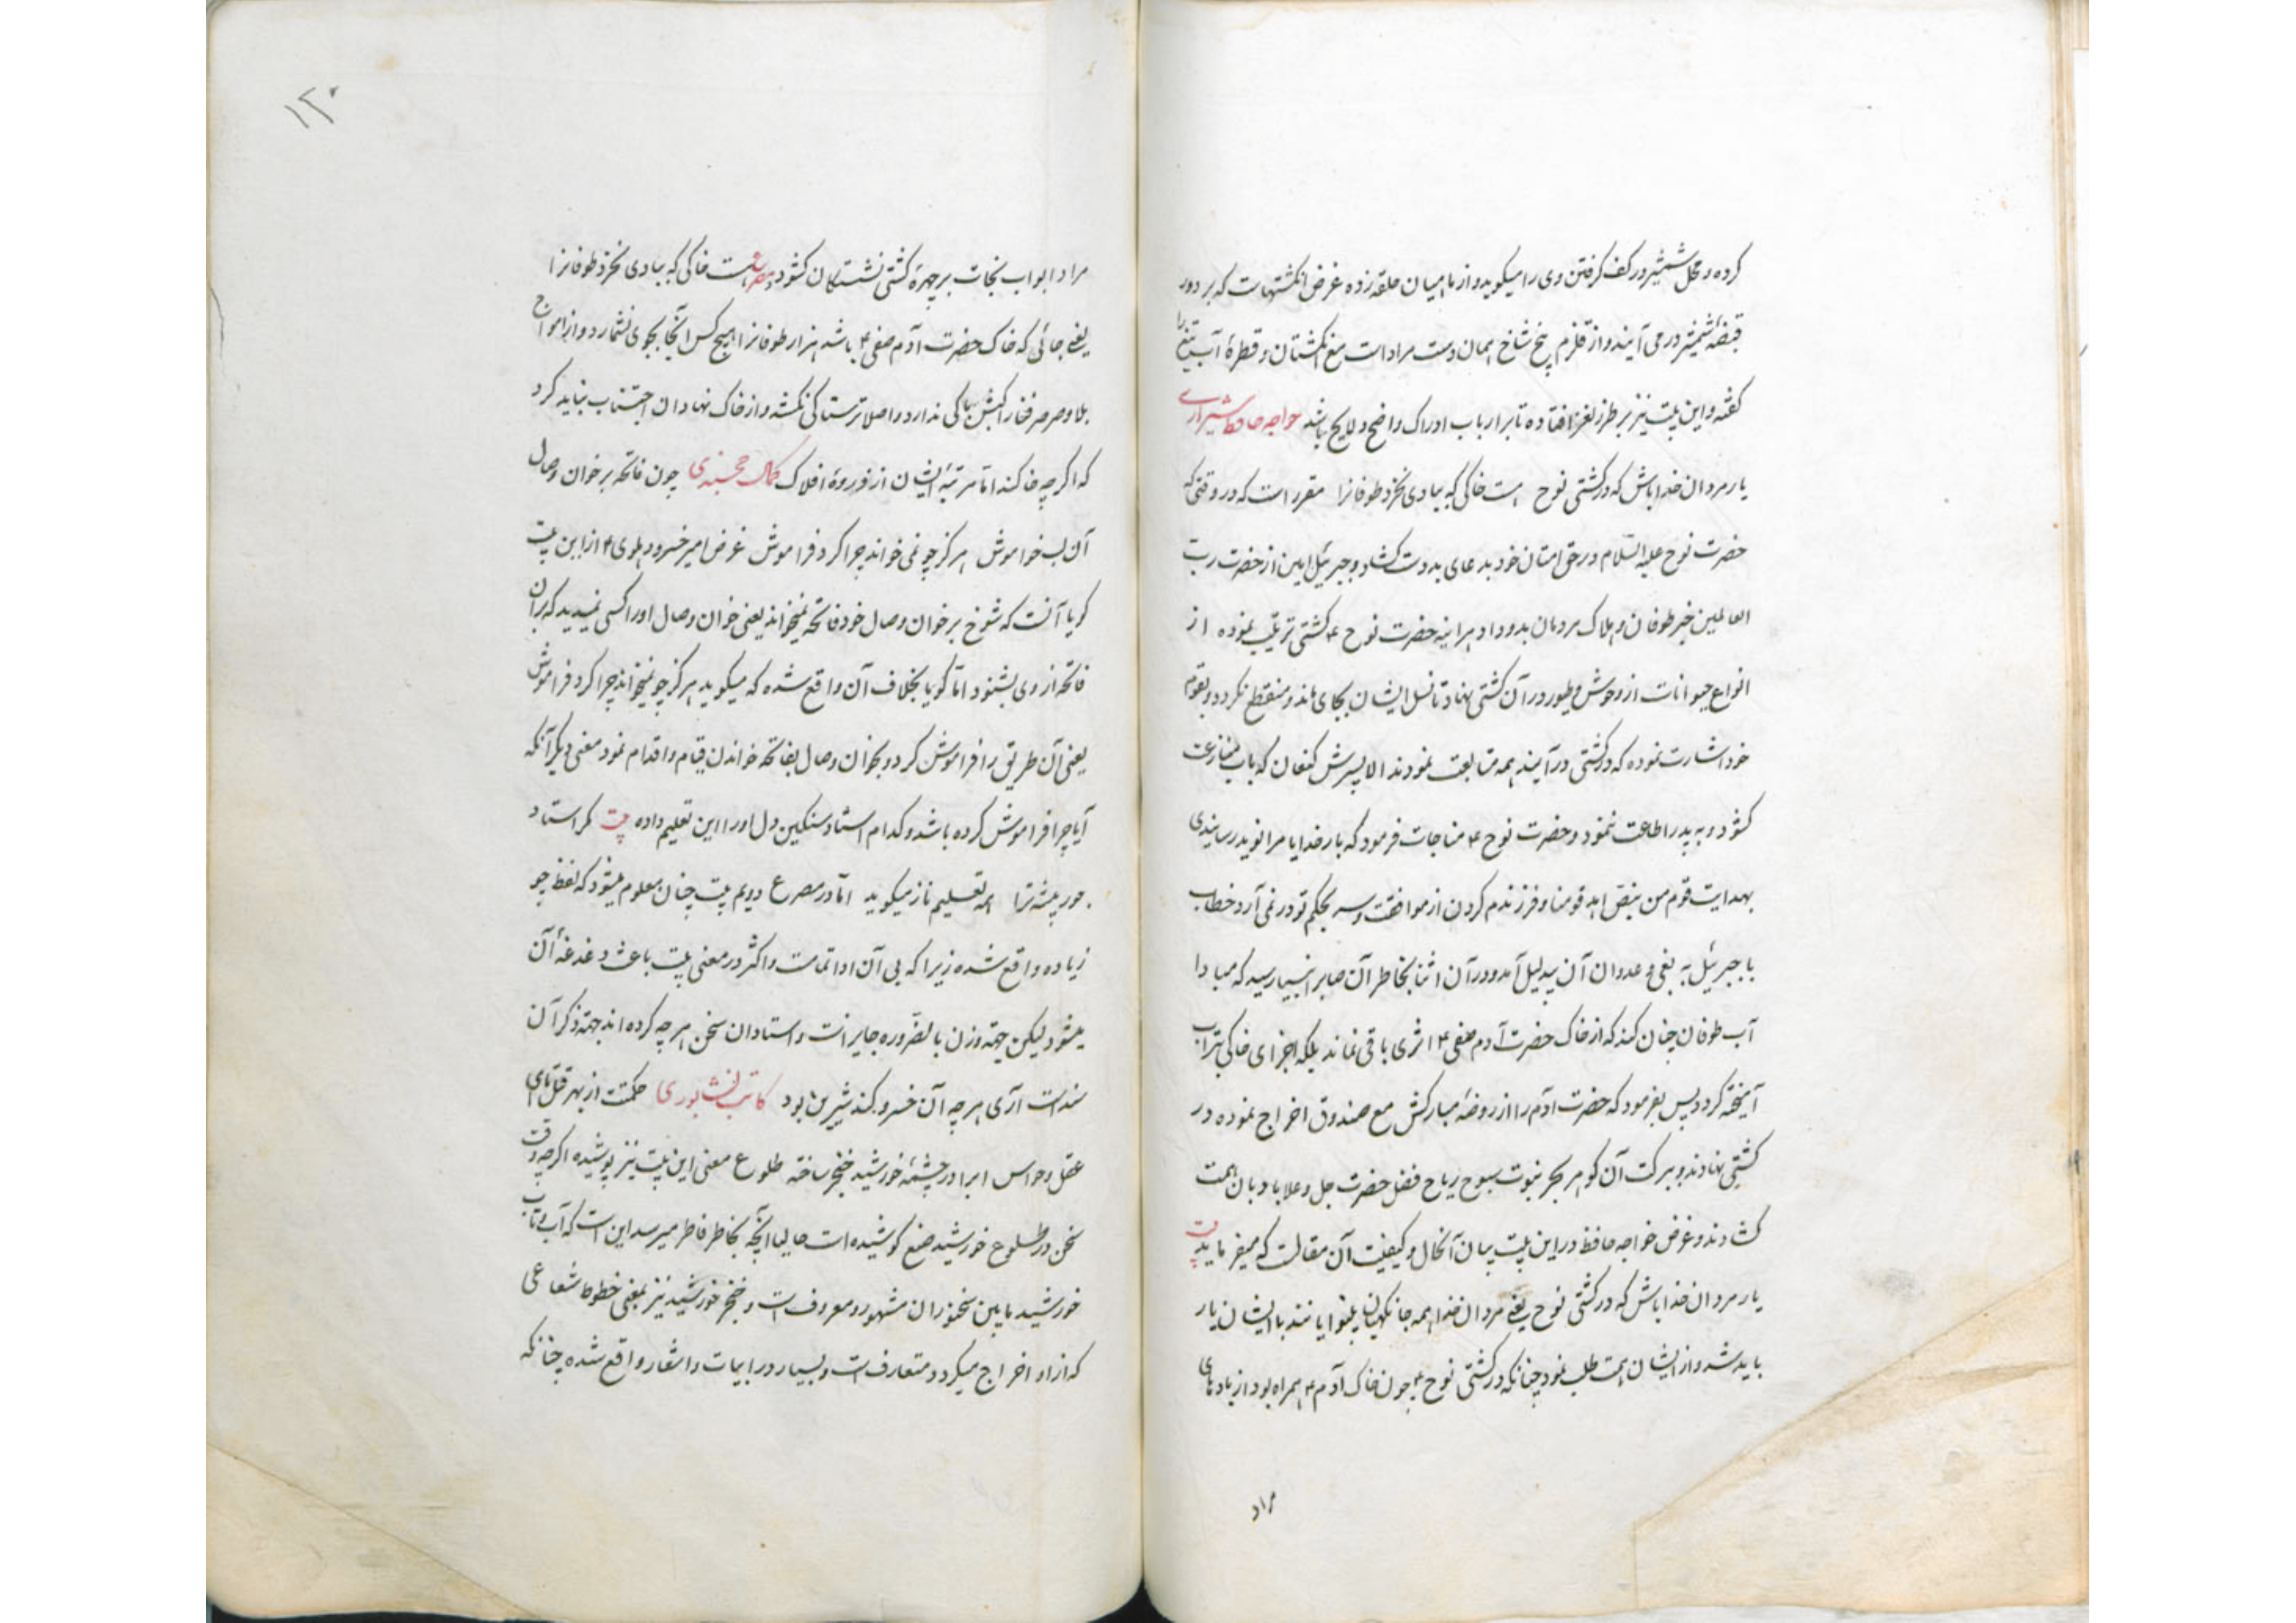 کرده و محل شمشیر در کف گرفتن وی را میگوید و از ماهیان حلقه زده غرض انگشتهاست که بر دور
قبضهٔ شمشیر در می آیند و از قلزم پنج شاخ همان دست مراد است مع انگشتان و قطرهٔ آب تیغ را
گفته و این بیت نیز بر طرز لغز افتاده تا بر ارباب ادراک واضح و لایح باشد خواجه حافظ شیرازی
یار مردان خدا باش که در کشتی نوح هست خاکی که ببادی نخرد طوفانرا مقرر است که در وقتی که
حضرت نوح علیه السلام در حق امتان خود بدعای بد دست گشاد و جبرئیل امین از حضرت رب
العالمین خبر طوفان و هلاک مردمان بدو داد هراینه حضرت نوح ء کشتی ترتیب نموده از
انواع حیوانات از وحوش و طیور در آن کشتی نهاد تا نسل ایشان بجای ماند و منقطع نکردد و بقوم
خود اشارت نموده که در کشتی در آیند همه متابعت نمودند الا پسرش کنعان که باب منازعت
کشود و به پدر اطاعت ننمود و حضرت نوح ء مناجات فرمود که بار خدایا مرا نوید رسانیدی
بهدایت قوم من و فرزندم کردن از موافقت و سر بحکم تو در نمی آرد خطاب
با جبرئیل به بغی و عدوان آن بیدلیل آمد و در آن اثنا بخاطر آن صابر انبیا رسید که مبادا
آب طوفان چنان کند که از خاک حضرت آدم صفی ء اثری باقی نماند بلکه اجزای خاکی بتراب
آمیخته کردد پس بفرمود که حضرت ادم را از روضهٔ مبارکش مع صندوق اخراج نموده در
کشتی نهادند و ببرکت آن کوهر بحر نبوت سبوح ریاح فضل حضرت جل و علا بادبان همت
کشادند و غرض خواجه حافظ در این بیت بیان آنحال و کیفیت آن مقالت که میفرماید بیت
یار مردان خدا باش که در کشتی نوح یعنی مردان خدا همه جا نگهبان با ایشان یار
باید شد و از ایشان همت طلب نمود چنانکه در کشتی نوح ء چون خاک آدم ء همراه بود از بادهای
مراد
۱۲۰
مراد ابواب نجات بر چهرهٔ کشتی نشستگان کشود مصرع هست خاکی که ببادی نخرد طوفانرا
یعنی جائی که خاک حضرت آدم صفی ء باشد هزار طوفانرا هیچ کس آنجا بجوی نشمارد و از امواج
بلا و صرصر فنا باکی ندارد و اصلا ترسناکی نکشد و از خاک نهادان اجتناب نباید کرد
که اگرچه خاکند اما مرتبهٔ ایشان از ذروهٔ افلاک کمال خجندی چون فاتحه بر خوان وصال
آن لب خواموش هرکز چو نمی خواند چرا کرد فراموش غرض امیر خسرو دهلوی ء از این بیت
کویا آنست که شوخ بر خوان وصال خود فاتحه نمیخواند یعنی خوان وصال او را کسی نمیدید که بر آن
فاتحه از وی بشنود اما کویا بخلاف آن واقع شده که میکوید هرکز چو نمیخواند چرا کرد فراموش
یعنی آن طریق را فراموش کرد و بخوان وصال بفاتحه خواندن قیام و اقدام نمود معنی دیکر آنکه
آیا چرا فراموش کرده باشد و کدام استاد سنکین دل او را این تعلیم داده بیت کر استاد
جور پیشه ترا همه تعلیم ناز میکوید اما در مصرع دویم بیت چنان معلوم میشود که لفظ چو
زیاده واقع شده زیرا که بی آن ادا تمامست و اکثر در معنی بیت باعث دغدغهٔ آن
میشود لیکن جهة وزن بالضروره جایز است و استادان سخن هرچه کرده اند جهة ذکر آن
سنداست آری هرچه آن خسرو کند شیرین بود کاتب نیشابوری حکمتت از بهر قتل
عقل و حواس ابر را در چشمهٔ خورشید خنجر ساخته طلوع معنی این بیت نیز پوشیده اگرچه وقت
سخن در طلوع خورشید صنع کوشیده است حالیا آنچه بخاطر فاطر میرسد این است که آب و تاب
خورشید مابین سخنوران مشهور و معروف است و خنجر خورشید نیز بمعنی خطوط شعاعی
که از او اخراج میکردد متعارف است و بسیار در ابیات و اشعار واقع شده چنانکه